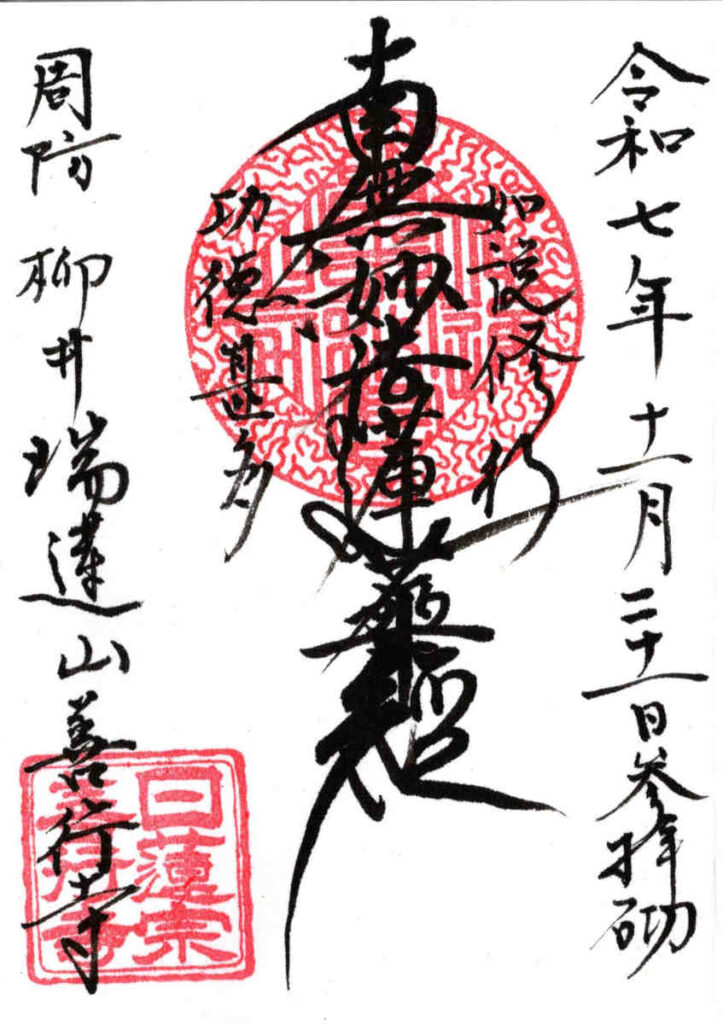 令和七年十一月二十一日参拝砌
如説修行
南無妙法蓮華経
功徳甚多
周防 柳井 瑞蓮山 善行寺
日蓮宗
善行寺